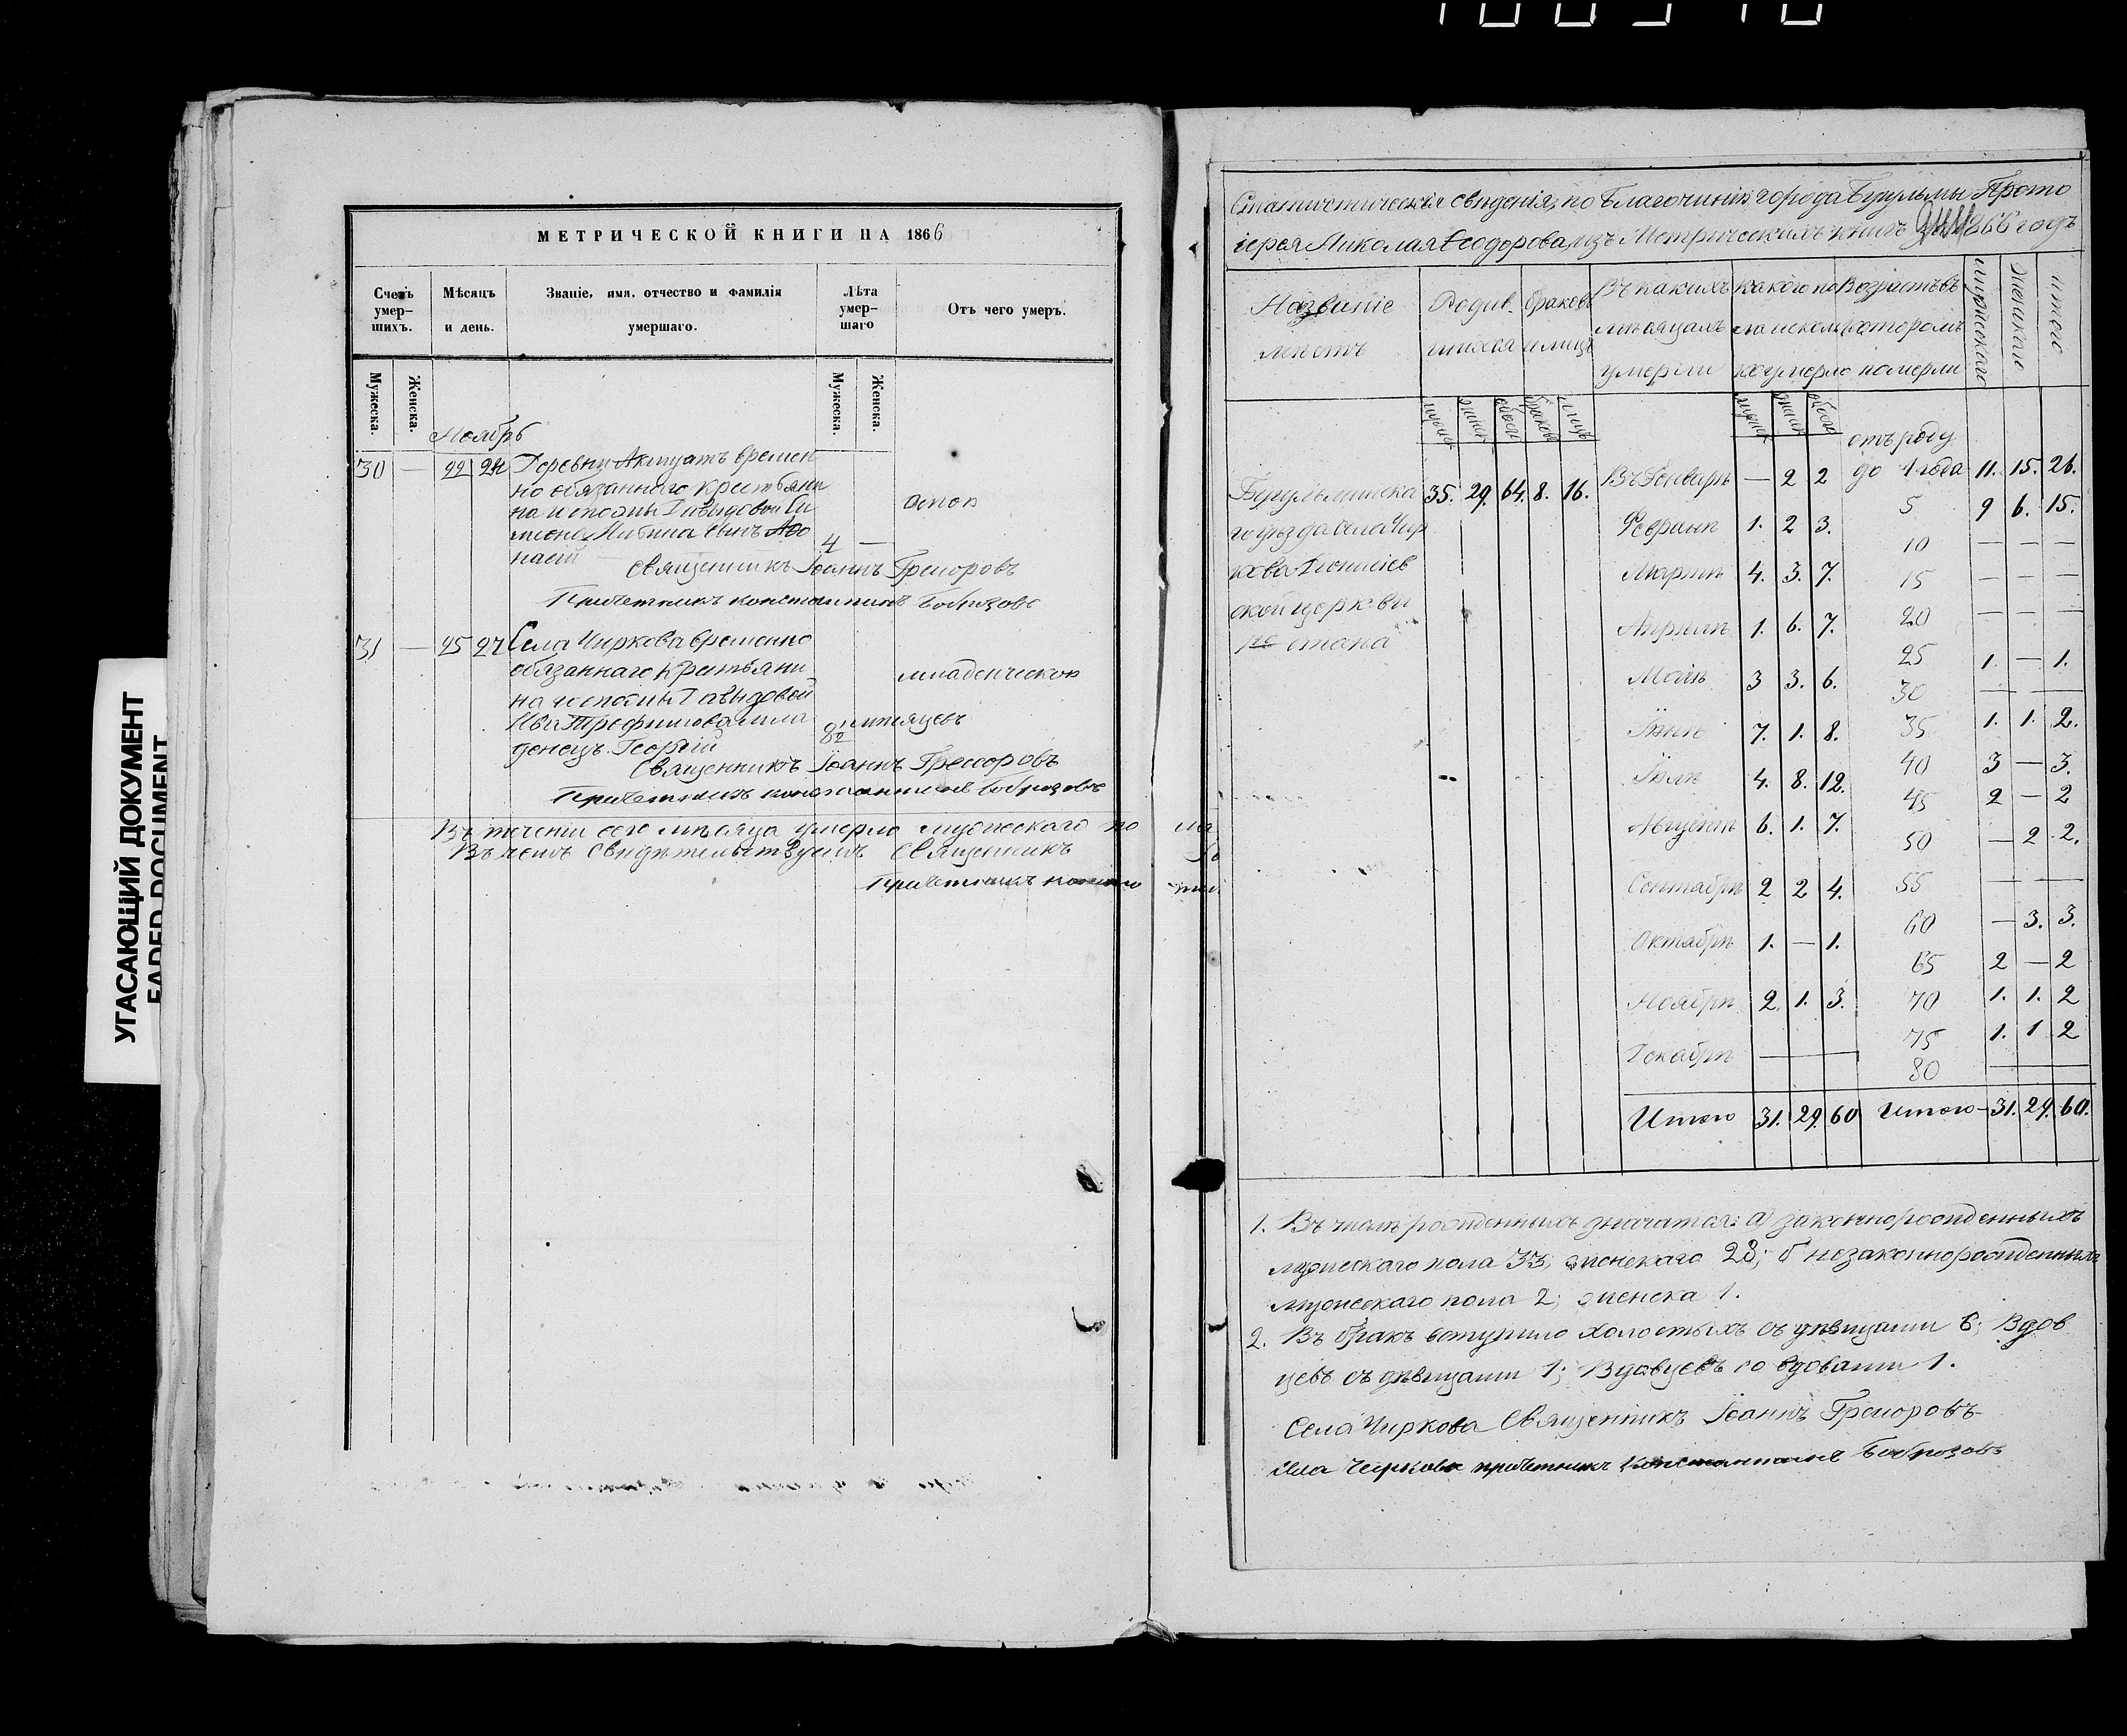 УГАСАЮЩИЙ ДОКУМЕНТ
FADED DOCUMENT
МЕТРИЧЕСКОЙ КНИГИ НА 1866
Счетъ умер-шихъ.
Мѣсяцъ и день.
Званіе, имя, отчество и фамилія умершаго.
Лѣта умер-шаго
Отъ чего умеръ.
Мужеска.
Женска.
Мужеска.
Женска.
Ноябрь
30 — 22 24 Деревни времен
но обязаннаго крестьяни
на госпожи Давыдовой Си
меона сынъ Аѳо
насій
4 —
оспою
Священникъ Іоаннъ Григоровъ
Причетникъ Константинъ
31 — 25 27 Села Чиркова временно
обязаннаго крестьяни
на госпожи Давыдовой
Трефилова мла
денецъ Георгій
8 мѣсяцевъ
младенческою
Священникъ Іоаннъ Григоровъ
Причетникъ Константинъ
Въ теченіи сего мѣсяца умерло мужескаго по
Въ чемъ свидѣтельствуемъ Священникъ
Причетникъ
Статистическія свѣденія по Благочинію города Бугульмы Прото
іерея Николая Ѳеодорова, изъ Метрическихъ книгъ 1866 годъ
Названіе мѣстъ
Родив-шихся
браковъ и лицъ
Въ какихъ мѣсяцахъ умерли
какого по ла и сколь ко умерло
Возрастъ въ которомъ померли
Мужескаго
Женскаго
итого
мужеск женск обоего браковъ лицъ
мужеск женск обоего
Бугульминска
го уѣзда села Чир
кова Діонисіев
ской церкви
1го стана
35. 29. 64. 8. 16.
Въ Генварѣ — 2 2
Февралѣ 1. 2 3.
Мартѣ 4. 3. 7.
Апрѣлѣ 1. 6. 7.
Маіѣ 3 3. 6.
Іюнѣ 7. 1. 8.
Іюлѣ 4. 8. 12.
Августѣ 6. 1. 7.
Сентябрѣ 2 2 4.
Октябрѣ 1. — 1.
Ноябрѣ 2. 1. 3.
Декабрѣ —
Итого 31. 29. 60
отъ роду
до 1 года 11. 15. 26.
5 9 6. 15.
10 — — —
15 — — —
20 — — —
25 1. — 1.
30 — —
35 1. 1. 2.
40 3 — 3.
45 2 — 2
50 — 2. 2.
55 — —
60 — 3. 3.
65 2 — 2
70 1. 1. 2
75 1. 1 2
80 —
Итого — 31. 29. 60.
1. Въ числѣ рожденныхъ значатся: а) законнорожденныхъ
мужескаго пола 33; женскаго 28; б незаконнорожденныхъ
мужескаго пола 2; женска 1.
2. Въ бракъ вступило холостыхъ съ дѣвицами 6; Вдов
цевъ съ дѣвицами 1; Вдовцевъ со вдовами 1.
Села Чиркова Священникъ Іоаннъ Григоровъ
Села Чиркова причетникъ Константинъ